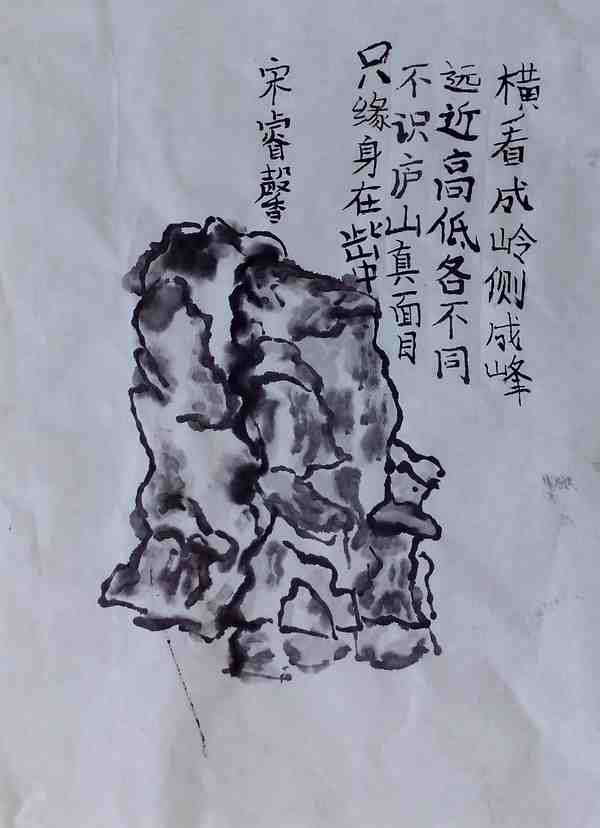 横看成岭侧成峰
远近高低各不同
不识庐山真面目
只缘身在此山中
宋睿馨